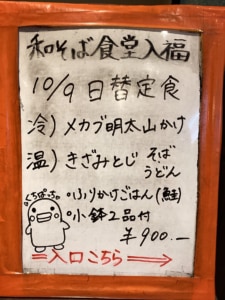 和そば食堂入福
10/9 日替定食
冷) メカブ明太山かけ
温) きざみとじ そば
うどん
くちぱっち
○ふりかけごはん(鮭)
○小鉢2品付
¥900.—
入口こちら